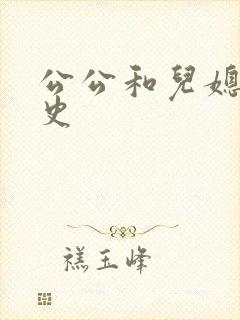 公公和兒媳
史
禚玉峰